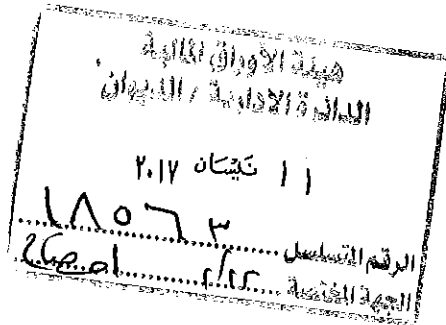 هيئة الأوراق المالية
الدائرة الادارية / الديوان
١١ نيسان ٢٠١٧
الرقم المتسلسل ١٨٥٦٣
الجهة المختصة